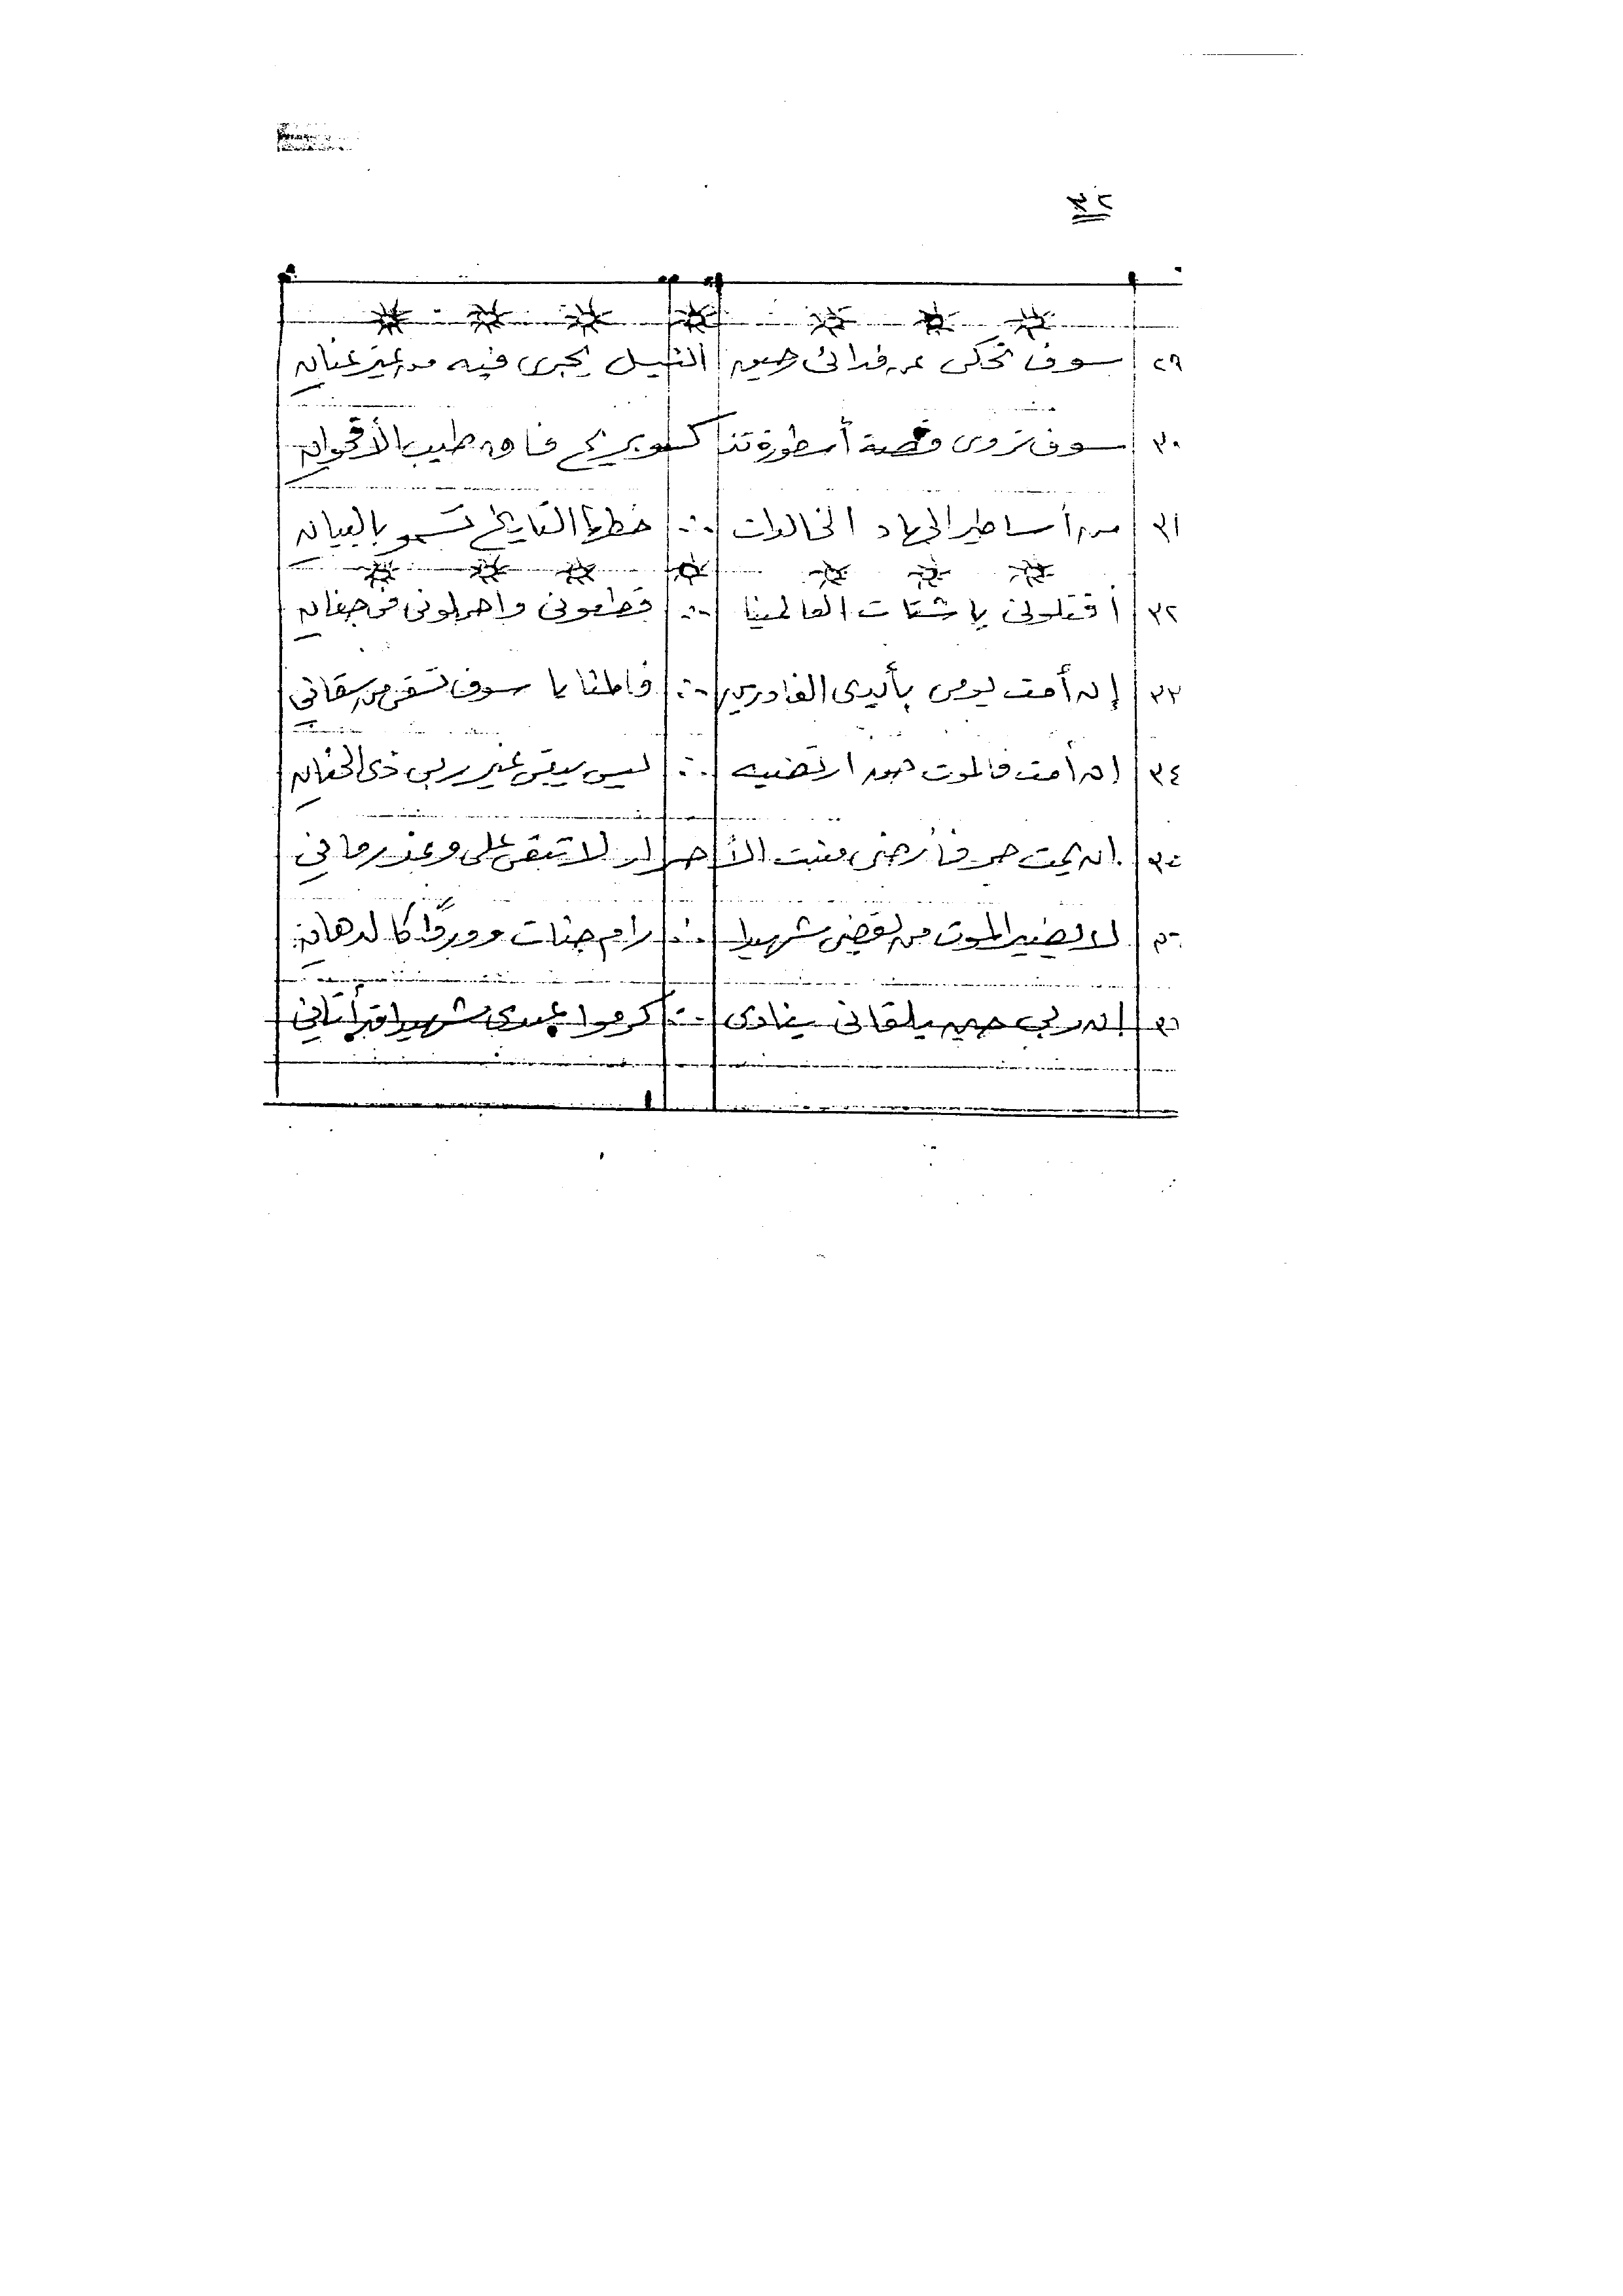 ٢٩ سوف تحكى عن فدائى حين النيل يجرى فيه من غير عنان
٣٠ سوف تروى قصة أسطورة تذا كسو بريح فاه طيب الأقحوان
٣١ من أساطير الجهاد الخالدات ∴ خطها التاريخ تسمو بالبيان
٣٢ أقتلونى يا شتات العالمينا ∴ قطعونى واحملونى فى جفان
٣٣ إن أمت يومى بأيدى الغادرين ∴ فالمنايا سوف تسقى من سقانى
٣٤ إن أمت فالموت حين ارتضيه ∴ ليس يبقى غير ربى ذى الحنان
ان يمت حر فأرضى منبت الأحرار لا تبقى على وغد رمانى
لا يضير الموت من يقضى شهيدا ∴ رام جنات ووردًا كالدهان
٣٦ إن ربى حين يلقانى ينادى ∴ كرموا عبدى شهيدا قد أتانى